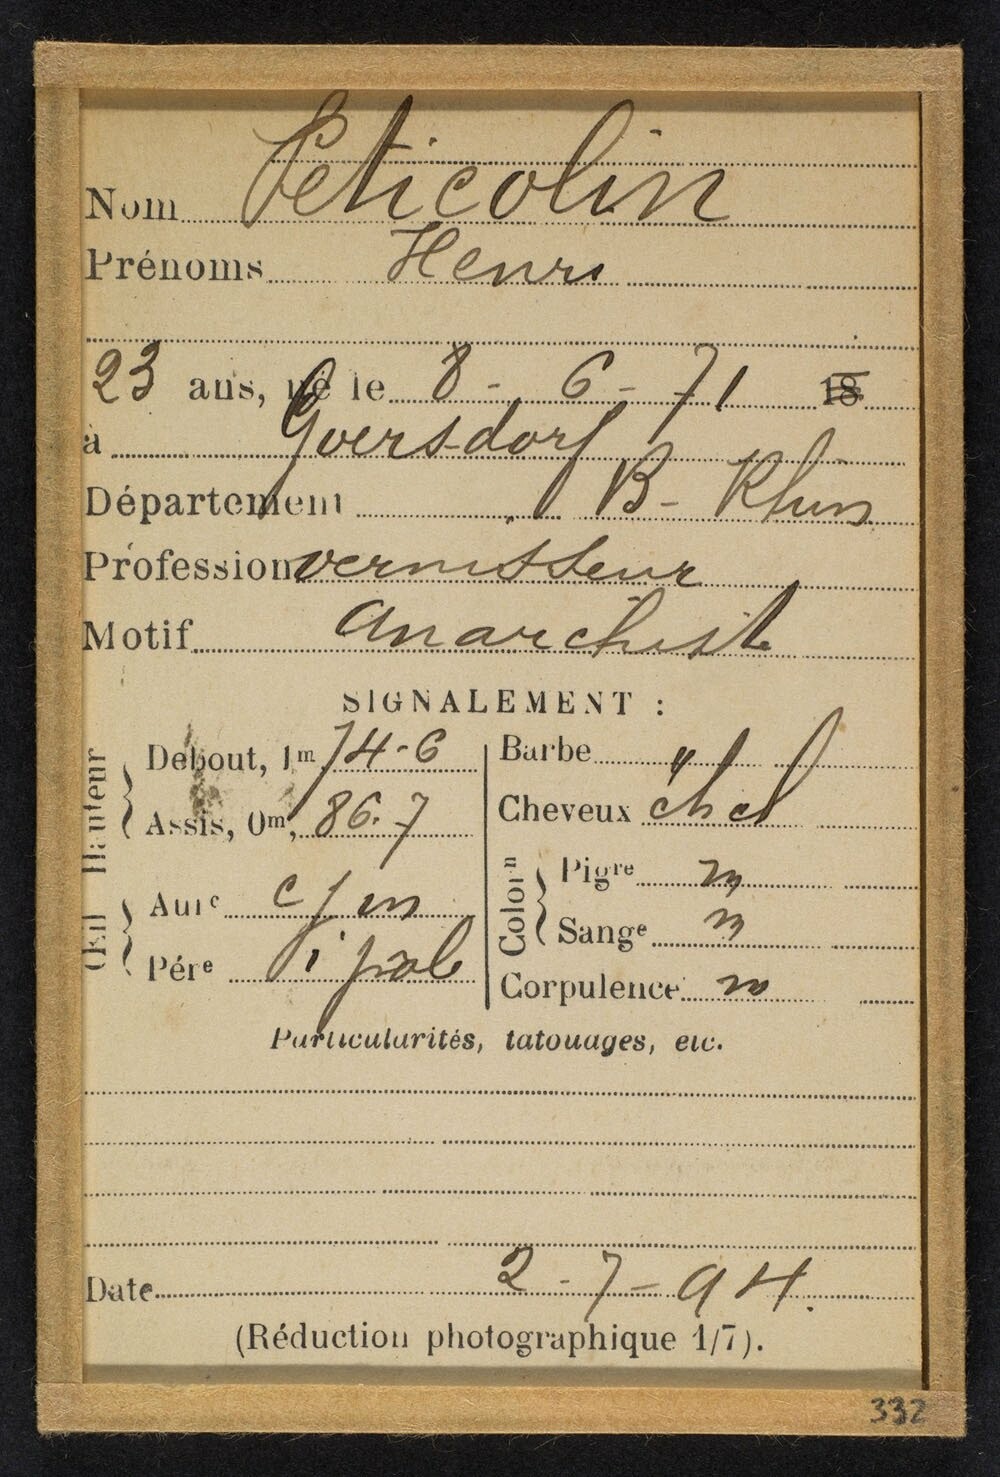 Nom Peticolin
Prénoms Henri
23 ans, né le 8 - 6 - 71 18
à Goersdorf
Département B- Rhin
Profession vernisseur
Motif Anarchiste
SIGNALEMENT :
Hauteur
Debout, 1m, 74-6
Assis, 0m, 86.7
Œil
Aure c j m
Pére i pâle
Barbe
Cheveux ch cl
Colorn
Pigre m
Sange m
Corpulence m
Particularités, tatouages, etc.
Date 2 - 7 - 94.
(Réduction photographique 1/7).
332